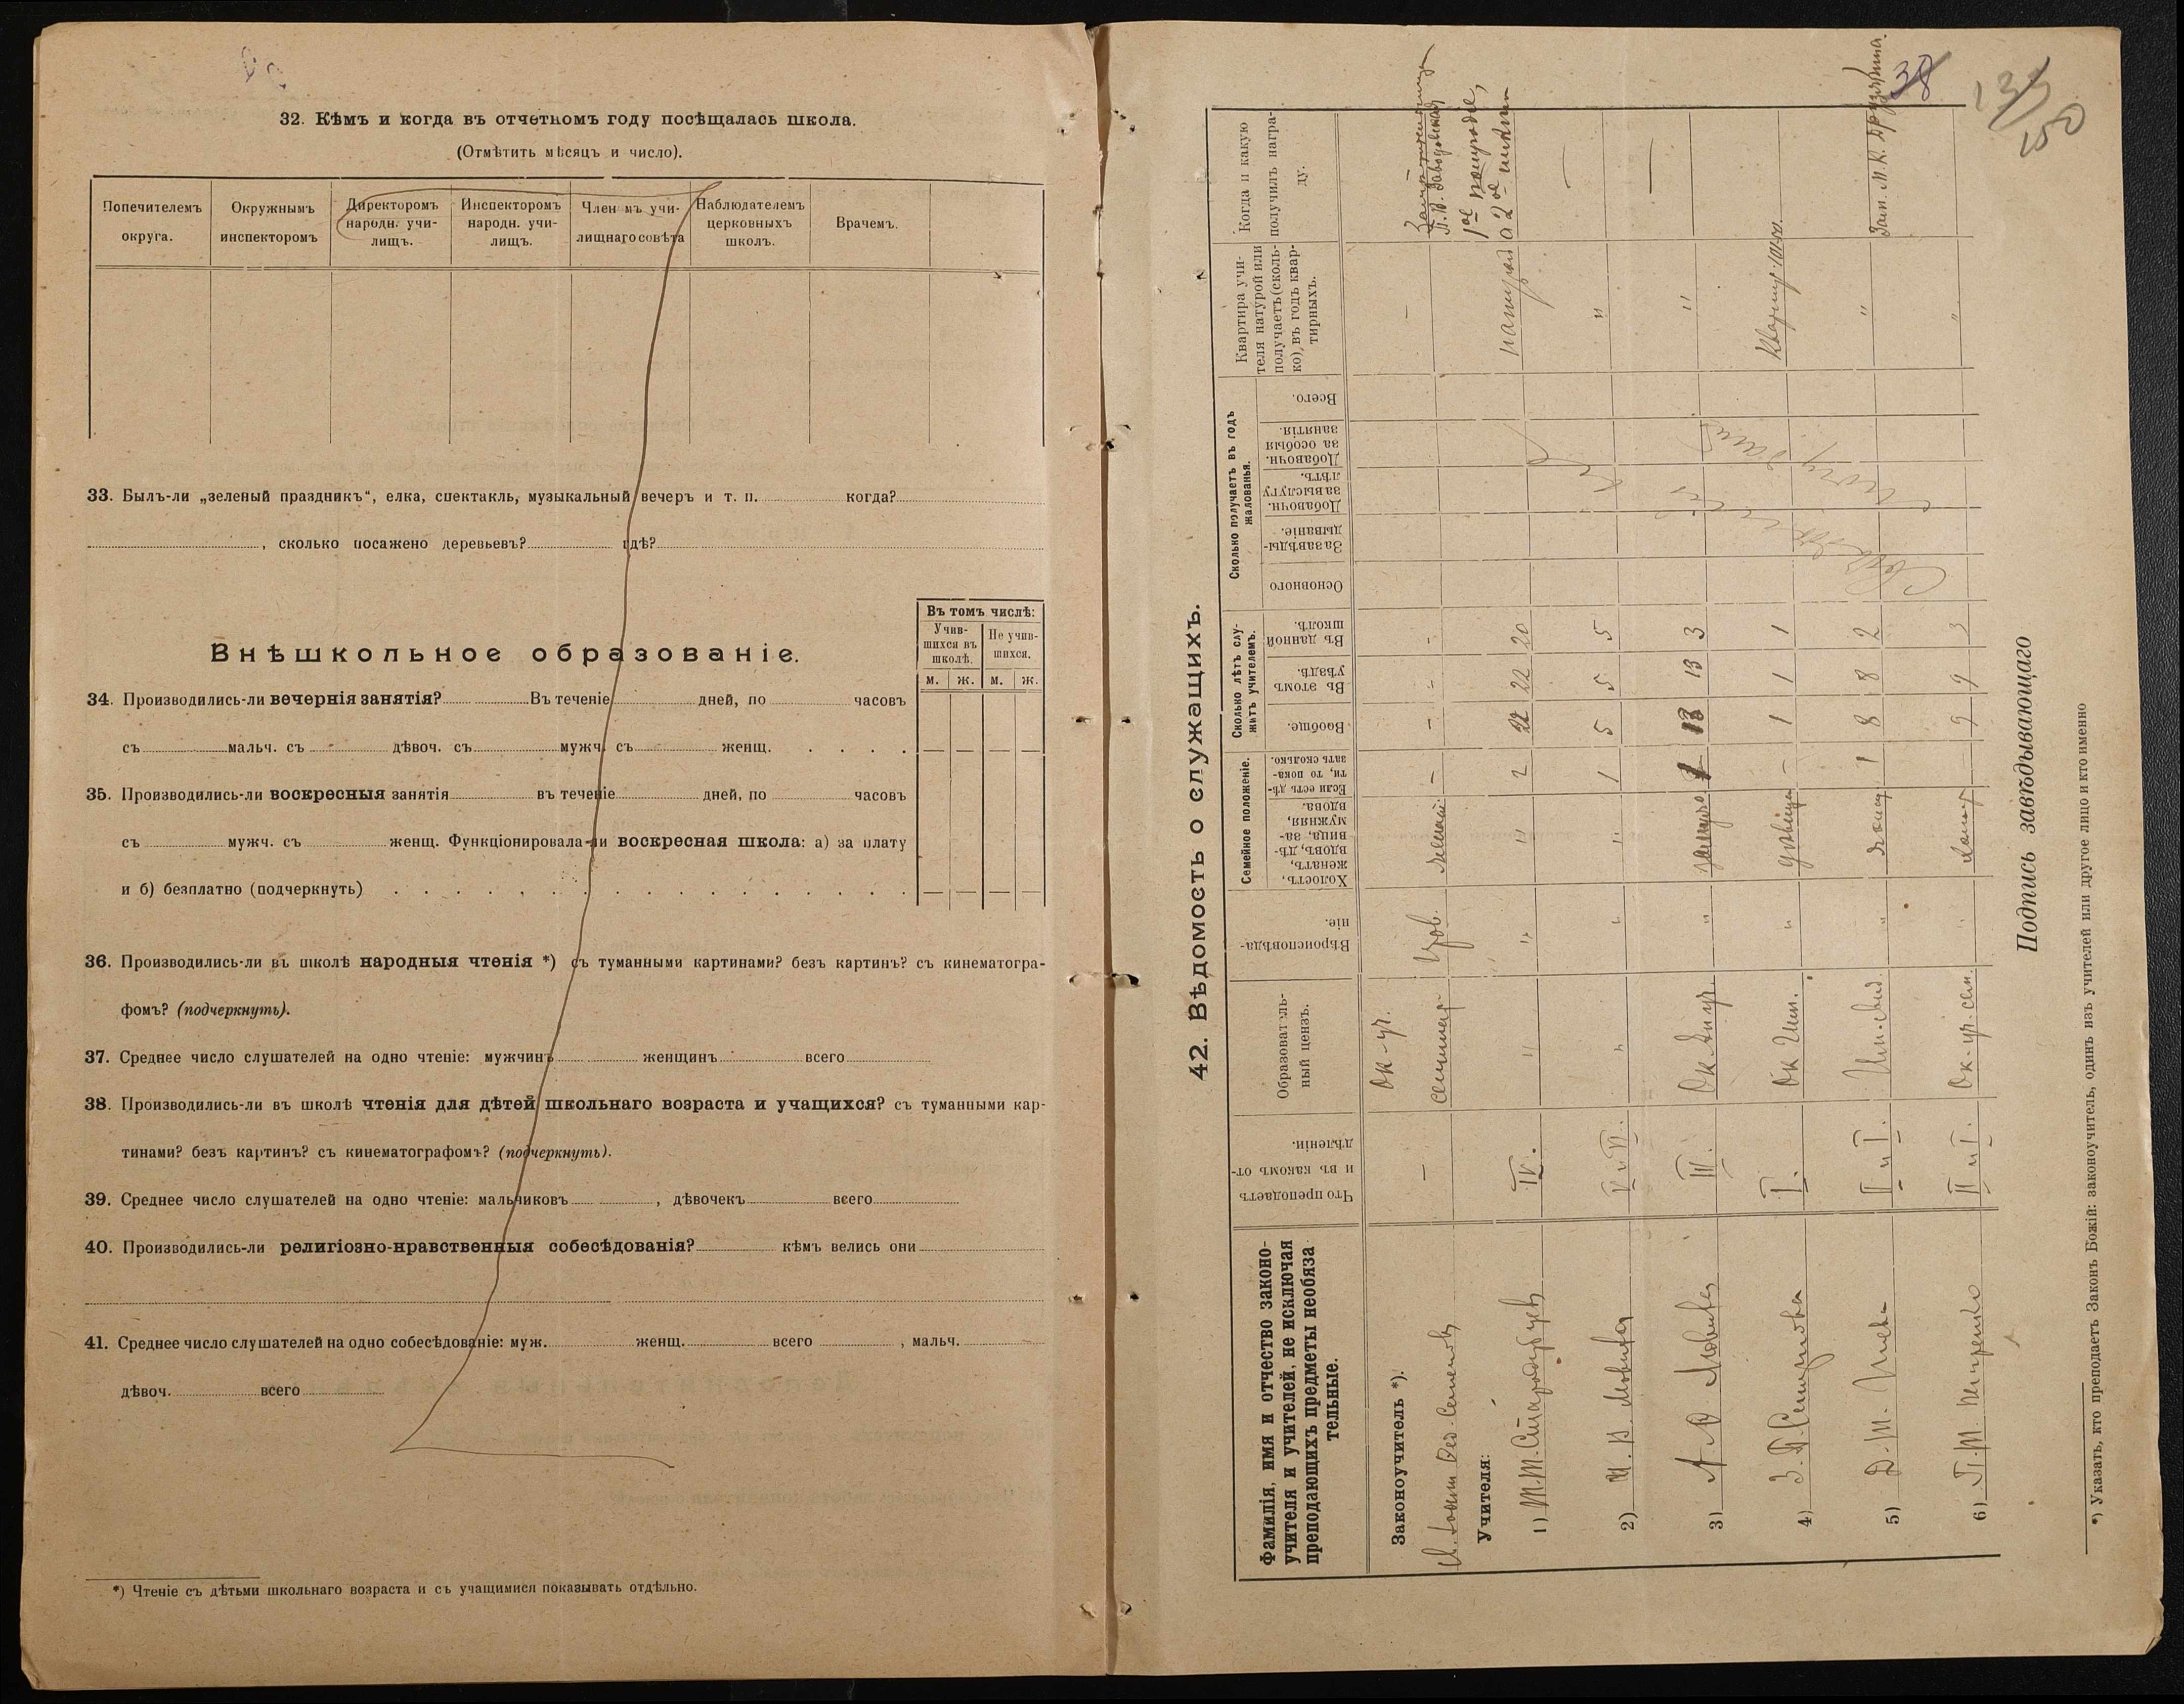 32. Кѣмъ и когда въ отчетномъ году посѣщалась школа.
(Отмѣтить мѣсяцъ и число).
Попечителемъ округа.
Окружнымъ инспекторомъ
Директоромъ народн. учи-лищъ.
Инспекторомъ народн. учи-лищъ.
Член мъ учи-лищнаго совѣта
Наблюдателемъ церковныхъ школъ.
Врачемъ.
33. Былъ-ли „зеленый праздникъ“, елка, спектакль, музыкальный вечеръ и т. п. когда?
, сколько посажено деревьевъ? гдѣ?
Въ томъ числѣ:
Учив-шихся въ школѣ.
Не учив-шихся.
м. ж. м. ж.
Внѣшкольное образованіе.
34. Производились-ли вечернія занятія? Въ теченіе дней, по часовъ
съ мальч. съ дѣвоч. съ мужч. съ женщ.
35. Производились-ли воскресныя занятія въ теченіе дней, по часовъ
съ мужч. съ женщ. Функціонировала-ли воскресная школа: а) за плату
и б) безплатно (подчеркнуть)
36. Производились-ли въ школѣ народныя чтенія *) съ туманными картинами? безъ картинъ? съ кинематогра-
фомъ? (подчеркнуть).
37. Среднее число слушателей на одно чтеніе: мужчинъ женщинъ всего
38. Производились-ли въ школѣ чтенія для дѣтей школьнаго возраста и учащихся? съ туманными кар-
тинами? безъ картинъ? съ кинематографомъ? (подчеркнуть).
39. Среднее число слушателей на одно чтеніе: мальчиковъ , дѣвочекъ всего
40. Производились-ли религіозно-нравственныя собесѣдованія? кѣмъ велись они
41. Среднее число слушателей на одно собесѣдованіе: муж. женщ. всего , мальч.
дѣвоч. всего
*) Чтеніе съ дѣтьми школьнаго возраста и съ учащимися показывать отдѣльно.
38
150
42. Вѣдомость о служащихъ.
Фамилія, имя и отчество законо-
учителя и учителей, не исключая
преподающихъ предметы необяза
тельные.
Что преподаетъ и въ какомъ от-дѣленіи.
Образователь-ный цензъ.
Вѣроисповѣда-ніе.
Семейное положеніе.
Холостъ, женатъ, вдовъ, дѣ-вица, за-мужняя, вдова.
Если есть дѣ-ти, то пока-зать сколько.
Сколько лѣтъ слу-житъ учителемъ.
Вообще.
Въ этомъ уѣздѣ.
Въ данной школѣ.
Сколько получаетъ въ годъ жалованья.
Основного
За завѣды-дываніе.
Добавочн. за выслугу лѣтъ.
Добавочн. за особыя занятія.
Всего.
Квартира учи-теля натурой или получаетъ (сколь-ко), въ годъ квар-тирныхъ.
Когда и какую получилъ награ-ду.
Законоучитель *).
Ок-ур. семинар
Учителя:
1) М. М. Стародубцев IV. " " " 2 22 22 20 натурой
2) V и VI. " " " 1 5 5 5 "
3) III. " замужн. 13 13 3 "
4) I. Ок " дѣвица - 1 1 1
5) II и I. " 1 8 8 2 "
6) II и I. Ок-ур. сем. - 9 9 3 "
Подпись завѣдывающаго
*) Указать, кто преподаетъ Законъ Божій: законоучитель, одинъ изъ учителей или другое лицо и кто именно